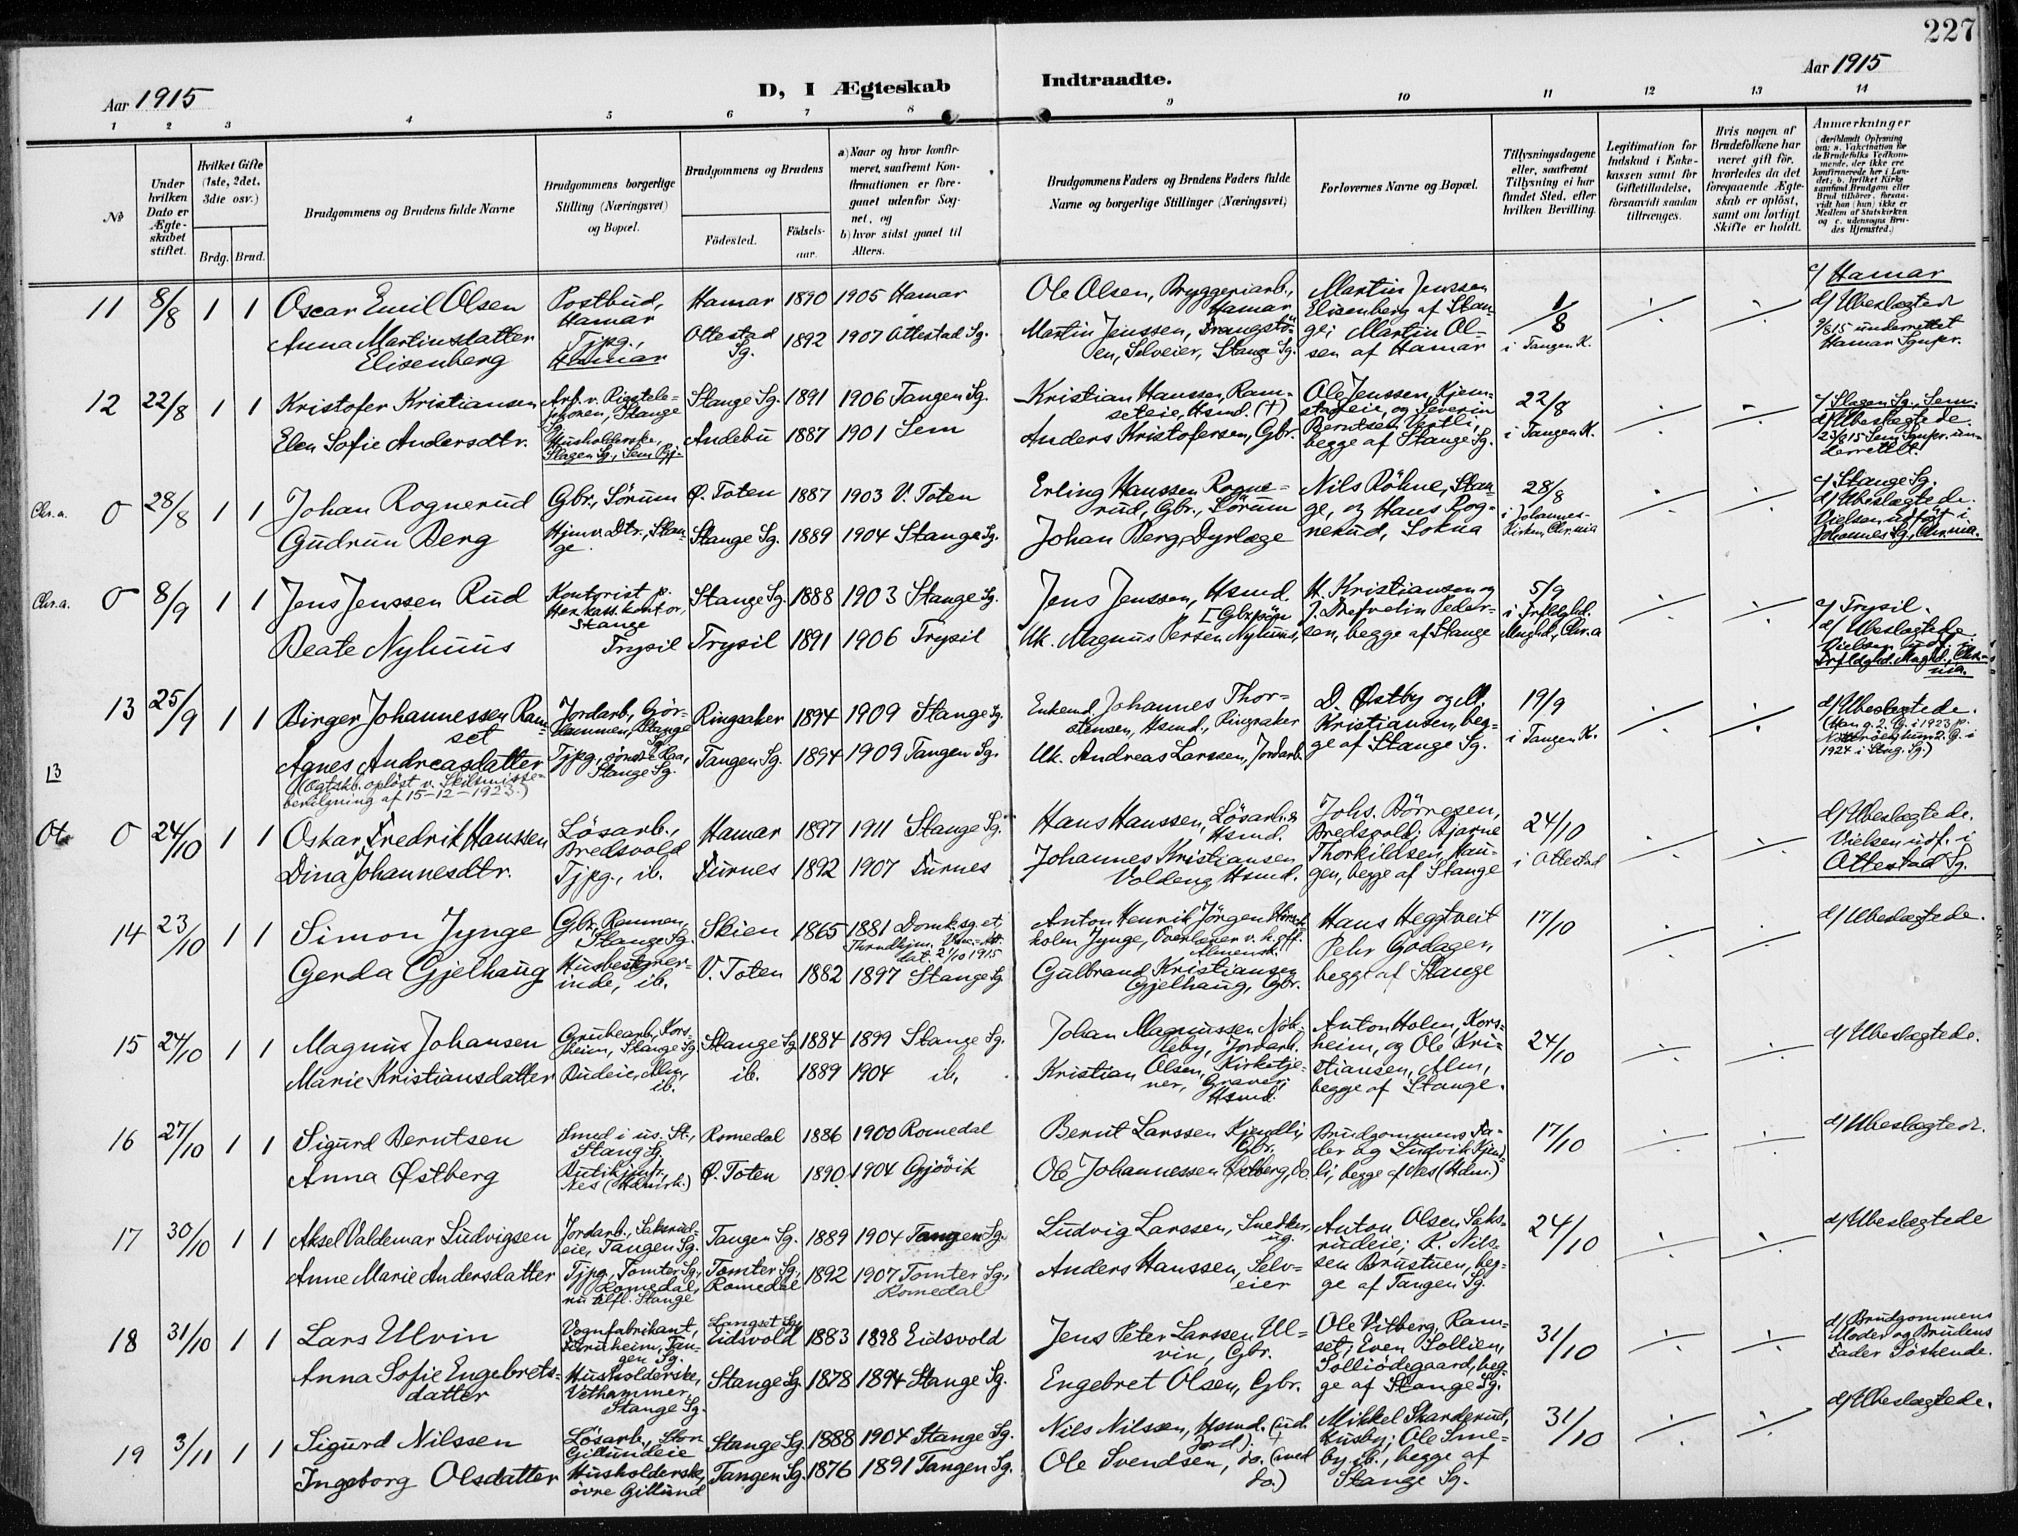 227
Aar 1915
D, I Ægteskab Indtraadte.
Aar 1915
1 2 3 4 5 6 7 8 9 10 11 12 13 14
No
Under hvilken Dato er Ægteskabet stiftet.
Hvilket Gifte (1ste, 2det, 3die osv.)
Brdg. Brud.
Brudgommens og Brudens fulde Navne
Brudgommens borgerlige Stilling (Næringsvei) og Bopæl.
Brudgommens og Brudens
Fødested.
Fødselsaar.
a) Naar og hvor konfirmeret, saafremt Konfirmationen er foregaaet udenfor Sognet, og
b) hvor sidst gaaet til Alters.
Brudgommens Faders og Brudens Faders fulde Navne og borgerlige Stillinger (Næringsvei)
Forlovernes Navne og Bopæl.
Tillysningsdagene eller, saafremt Tillysning ei har fundet Sted, efter hvilken Bevilling.
Legitimation for Indskud i Enkekassen samt for Giftetilladelse, forsaavidt saadan tiltrænges.
Hvis nogen af Brudefolkene har været gift før, hvorledes da det foregaaende Ægteskab er opløst, samt om lovligt Skifte er holdt.
Anmærkninger
11 8/8 1 1 Oscar Emil Olsen Postbud, Hamar Hamar 1890 1905 Hamar Ole Olsen, Bryggeriarb., Hamar Martin Jenssen Elisenberg af Stange; Martin Olsen af Hamar 1/8 i Tangen K. c/ Hamar
Anna Martinsdatter Elisenberg Tjpg., Hamar Ottestad Sg. 1892 1907 Ottestad Sg. Martin Jenssen, Selveier, Stange Sg. d/ Ubeslægtede 9/8 15 underrettet Hamar Sgnpr.
12 22/8 1 1 Kristofer Kristiansen Arb. v. Rigstelefonen, Stange Sg. Stange Sg. 1891 1906 Tangen Sg. Kristian Hanssen, Ramseteie, Hsmd. (†) Ole Jenssen, Kjemstadeie, og Severin Berntsen Vestli, begge af Stange Sg. 22/8 i Tangen K. c/ Slagen Sg., Sem.
Elen Sofie Andersdtr. Husholderske, Slagen Sg., Sem Pgj. Andebu 1887 1901 Sem Anders Kristofersen, Gbr. d/ Ubeslægtede. 23/8 15 Sem Sgnpr. underrettet.
Chr.a. 0 28/8 1 1 Johan Rognerud Gbr., Sörum Ø. Toten 1887 1903 V. Toten Erling Hanssen Rognerud, Gbr., Sörum Nils Röhne, Stange, og Hans Rognerud, Sokna 28/8 i Johanneskirken, Chr.nia c/ Stange Sg.
Gudrun Berg Hjmv. Dtr., Stange Stange Sg. 1889 1904 Stange Sg. Johan Berg, Dyrlæge d/ Ubeslægtede. Vielsen udfört i Johannes Sg., Chr.nia.
Chr.a. 0 8/9 1 1 Jens Jenssen Rud Kontorist p. Herkass.kontor, Stange Stange Sg. 1888 1903 Stange Sg. Jens Jenssen, Hsmd. H. Kristiansen og J. Pedersen, begge af Stange 5/9 c/ Trysil.
Beate Nyhuus Trysil Trysil 1891 1906 Trysil Uk. Magnus Persen Nyhuus, d/ Ubeslægtede Vielsen udf. i
13 25/9 1 1 Birger Johannessen Ramset Jordarb., Stange Sg. Ringsaker 1894 1909 Stange Sg. Enkemd. Johannes Thorstensen, Hsmd., Ringsaker D. Østby og M. Kristiansen, begge af Stange Sg. 19/9 i Tangen K. d/ Ubeslægtede.
13 Agnes Andreasdatter Tjpg., söndre Raa, Stange Sg. Tangen Sg. 1894 1909 Tangen Sg. Uk. Andreas Larssen, Jordarb.
(Ægtskb. oplöst v. Skilsmissebevilgning af 15-12-1923.)
Ot. 0 24/10 1 1 Oskar Fredrik Hanssen Lösarb., Bredsvold Hamar 1897 1911 Stange Sg. Hans Hanssen, Lösarb. & Hsmd. Johs. Börresen, Bredsvold; Bjarne Thorkildsen Haugen, begge af Stange 24/10 i Ottestad d/ Ubeslægtede.
Dina Johannesdtr. Tjpg., ib. Furnes 1892 1907 Furnes Johannes Kristiansen Voldeng, Hsmd. Vielsen udf. i Ottestad Sg.
14 23/10 1 1 Simon Jynge Gbr., Rammen, Stange Sg. Skien 1865 1881 Domk.sg. et, Throndhjem. Vac.-Att. dat. 21/10 1915 Anton Henrik Jörgen Hornholm Jynge, Overlærer v. h. off. Almensk. Hans Heggtveit Pehr Godager, begge af Stange 17/10 d/ Ubeslægtede.
Gerda Gjelhaug Husbestyrerinde, ib. V. Toten 1882 1897 Stange Sg. Gulbrand Kristiansen Gjelhaug, Gbr.
15 24/10 1 1 Magnus Johansen Grubearb., Korsheim, Stange Sg. Stange Sg. 1884 1899 Stange Sg. Johan Magnussen Jordarb. Anton Holm, Korsheim, og Ole Kristiansen, Alm, begge af Stange. 24/10 d/ Ubeslægtede.
Marie Kristiansdatter Rudeie, Alm, ib. ib. 1889 1904 ib. Kristian Olsen, Kirketjener, Graver, Hsmd.
16 27/10 1 1 Sigurd Berntsen Smed i us. St., Stange Sg. Romedal 1886 1900 Romedal Bernt Larssen Kjendli, Gbr. Brudgommens Fader og Ludvik Kjendli, begge af Nes (Hdm.) 17/10 d/ Ubeslægtede.
Anna Østberg Butikjmfr., Nes (Hdmrk.) Ø. Toten 1890 1904 Gjövik Ole Johannessen Østberg, do.
17 30/10 1 1 Aksel Valdemar Ludvigsen Jordarb., Saksrudeie, Tangen Sg. Tangen Sg. 1889 1904 Tangen Sg. Ludvig Larssen, Snedker, ug. Anton Olsen Saksrudeie; K. Nilssen Brustuen, begge af Tangen Sg. 24/10 d/ Ubeslægtede
Anne Marie Andersdatter Tjpg., Tomter Sg., Romedal, nu tilfl. Stange Tomter Sg., Romedal 1892 1907 Tomter Sg., Romedal Anders Hanssen, Selveier
18 31/10 1 1 Lars Ulvin Vognfabrikant, Furuheim, Tangen Sg. Langset Sg. Eidsvold 1883 1898 Eidsvold Jens Peter Larssen Ulvin, Gbr. Ole Vitberg, Ramset; Even Sollien, Solliödegaard, begge af Stange Sg. 31/10 d/ Brudgommens Moder og Brudens Fader Söskende.
Anna Sofie Engebretsdatter Husholderske, Vethammer, Stange Sg. Stange Sg. 1878 1894 Stange Sg. Engebret Olsen, Gbr.
19 3/11 1 1 Sigurd Nilssen Lösarb., Stor Gillundeie Stange Sg. 1888 1904 Stange Sg. Nils Nilssen, Hsmd. (ud. Jord); † Mikkel Skarderud, Husby; Ole Smeby ib., begge af Stange Sg. 31/10 d/ Ubeslægtede.
Ingeborg Olsdatter Husholderske, övre Gillund Tangen Sg. 1876 1891 Tangen Sg. Ole Svendsen, do. (med do.)